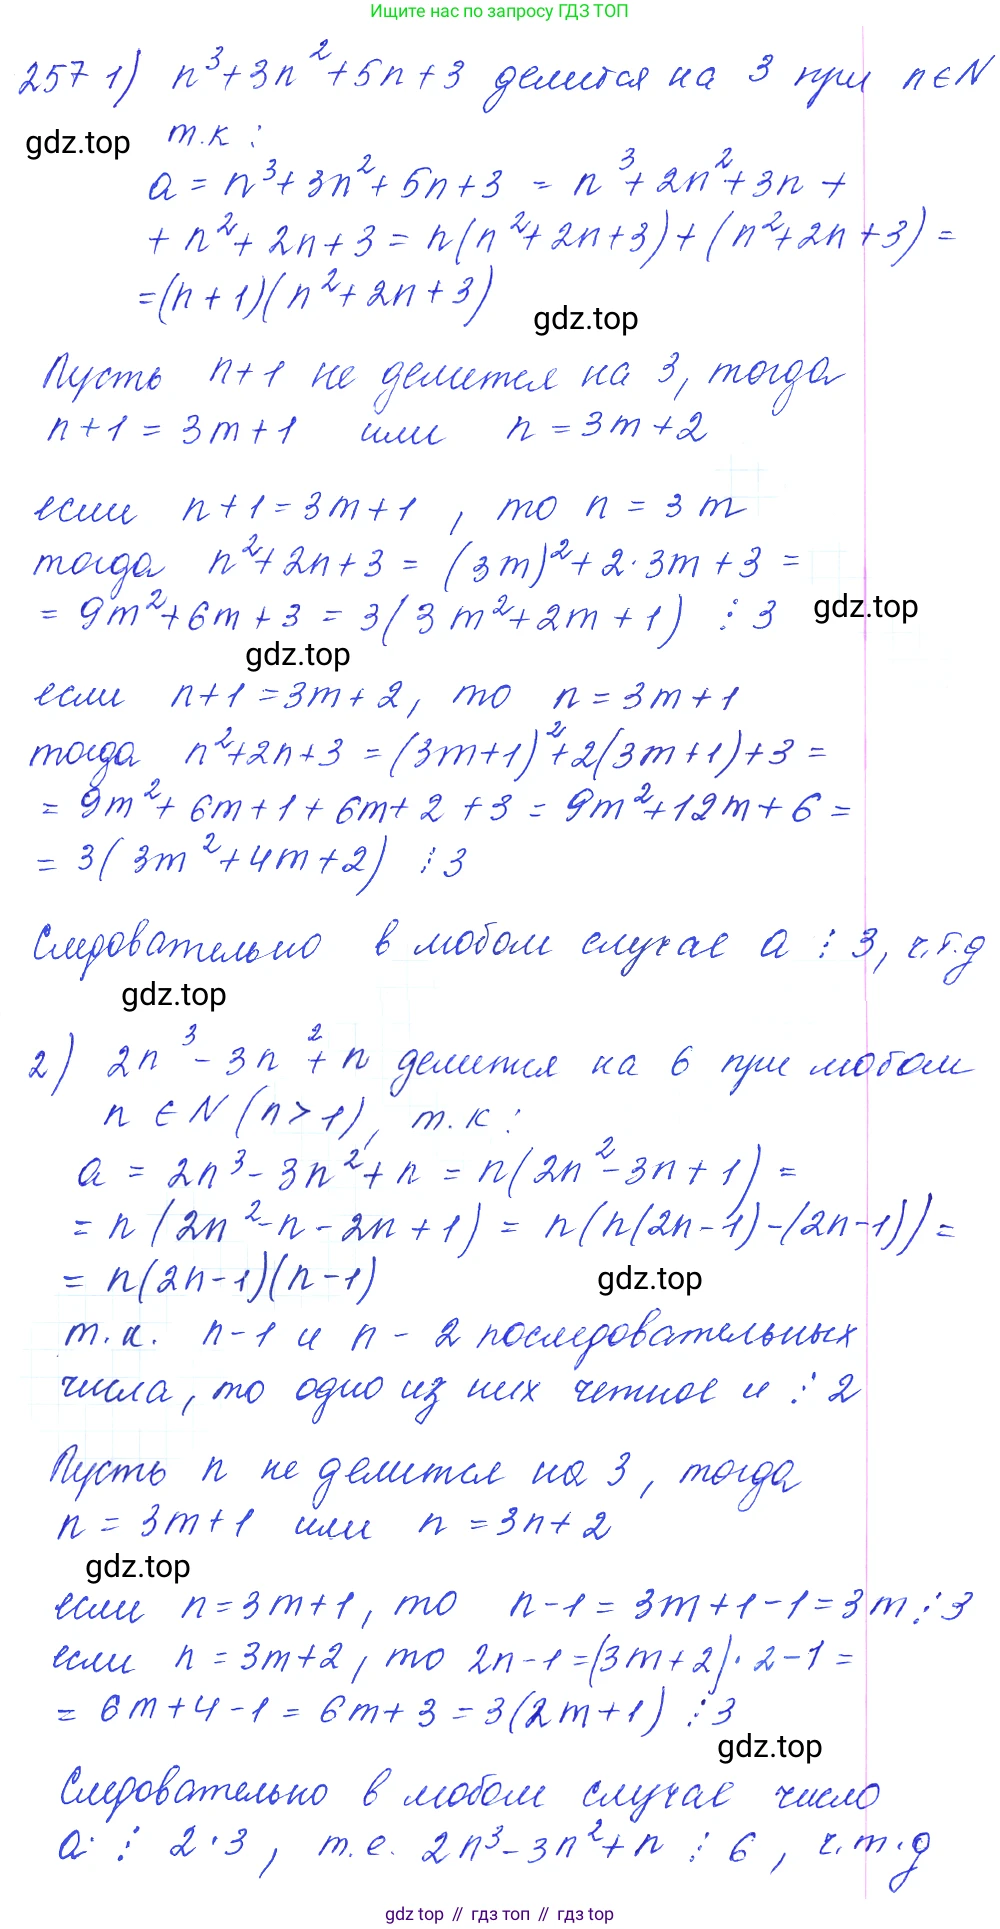 Ищите нас по запросу ГДЗ ТОП
257 1) n³+3n²+5n+3 делится на 3 при n∈N
gdz.top т.к :
a = n³+3n²+5n+3 = n³+2n²+3n +
+ n²+2n+3 = n(n²+2n+3)+(n²+2n+3) =
=(n+1)(n²+2n+3)
gdz.top
Пусть n+1 не делится на 3, тогда
n+1 = 3m+1 или n = 3m+2
если n+1 = 3m+1 , то n = 3m
тогда n²+2n+3 = (3m)²+2·3m+3 =
= 9m²+6m+3 = 3(3m²+2m+1) ⋮ 3
gdz.top
gdz.top
если n+1 = 3m+2, то n = 3m+1
тогда n²+2n+3 = (3m+1)²+2(3m+1)+3 =
= 9m²+6m+1+6m+2+3 = 9m²+12m+6 =
= 3(3m²+4m+2) ⋮ 3
Следовательно в любом случае a ⋮ 3, ч.т.д
gdz.top
2) 2n³-3n²+n делится на 6 при любом
n ∈ N (n>1), т.к :
a = 2n³-3n²+n = n(2n²-3n+1) =
= n(2n²-n-2n+1) = n(n(2n-1)-(2n-1)) =
= n(2n-1)(n-1)
gdz.top
т.к. n-1 и n - 2 последовательных
числа, то одно из них четное и ⋮ 2
Пусть n не делится на 3, тогда
n = 3m+1 или n = 3n+2
gdz.top
если n = 3m+1, то n-1 = 3m+1-1 = 3m ⋮ 3
если n = 3m+2, то 2n-1 = (3m+2)·2-1 =
= 6m+4-1 = 6m+3 = 3(2m+1) ⋮ 3
gdz.top
Следовательно в любом случае число
a ⋮ 2·3, т.е. 2n³-3n²+n ⋮ 6, ч.т.д
gdz.top // гдз топ // gdz.top